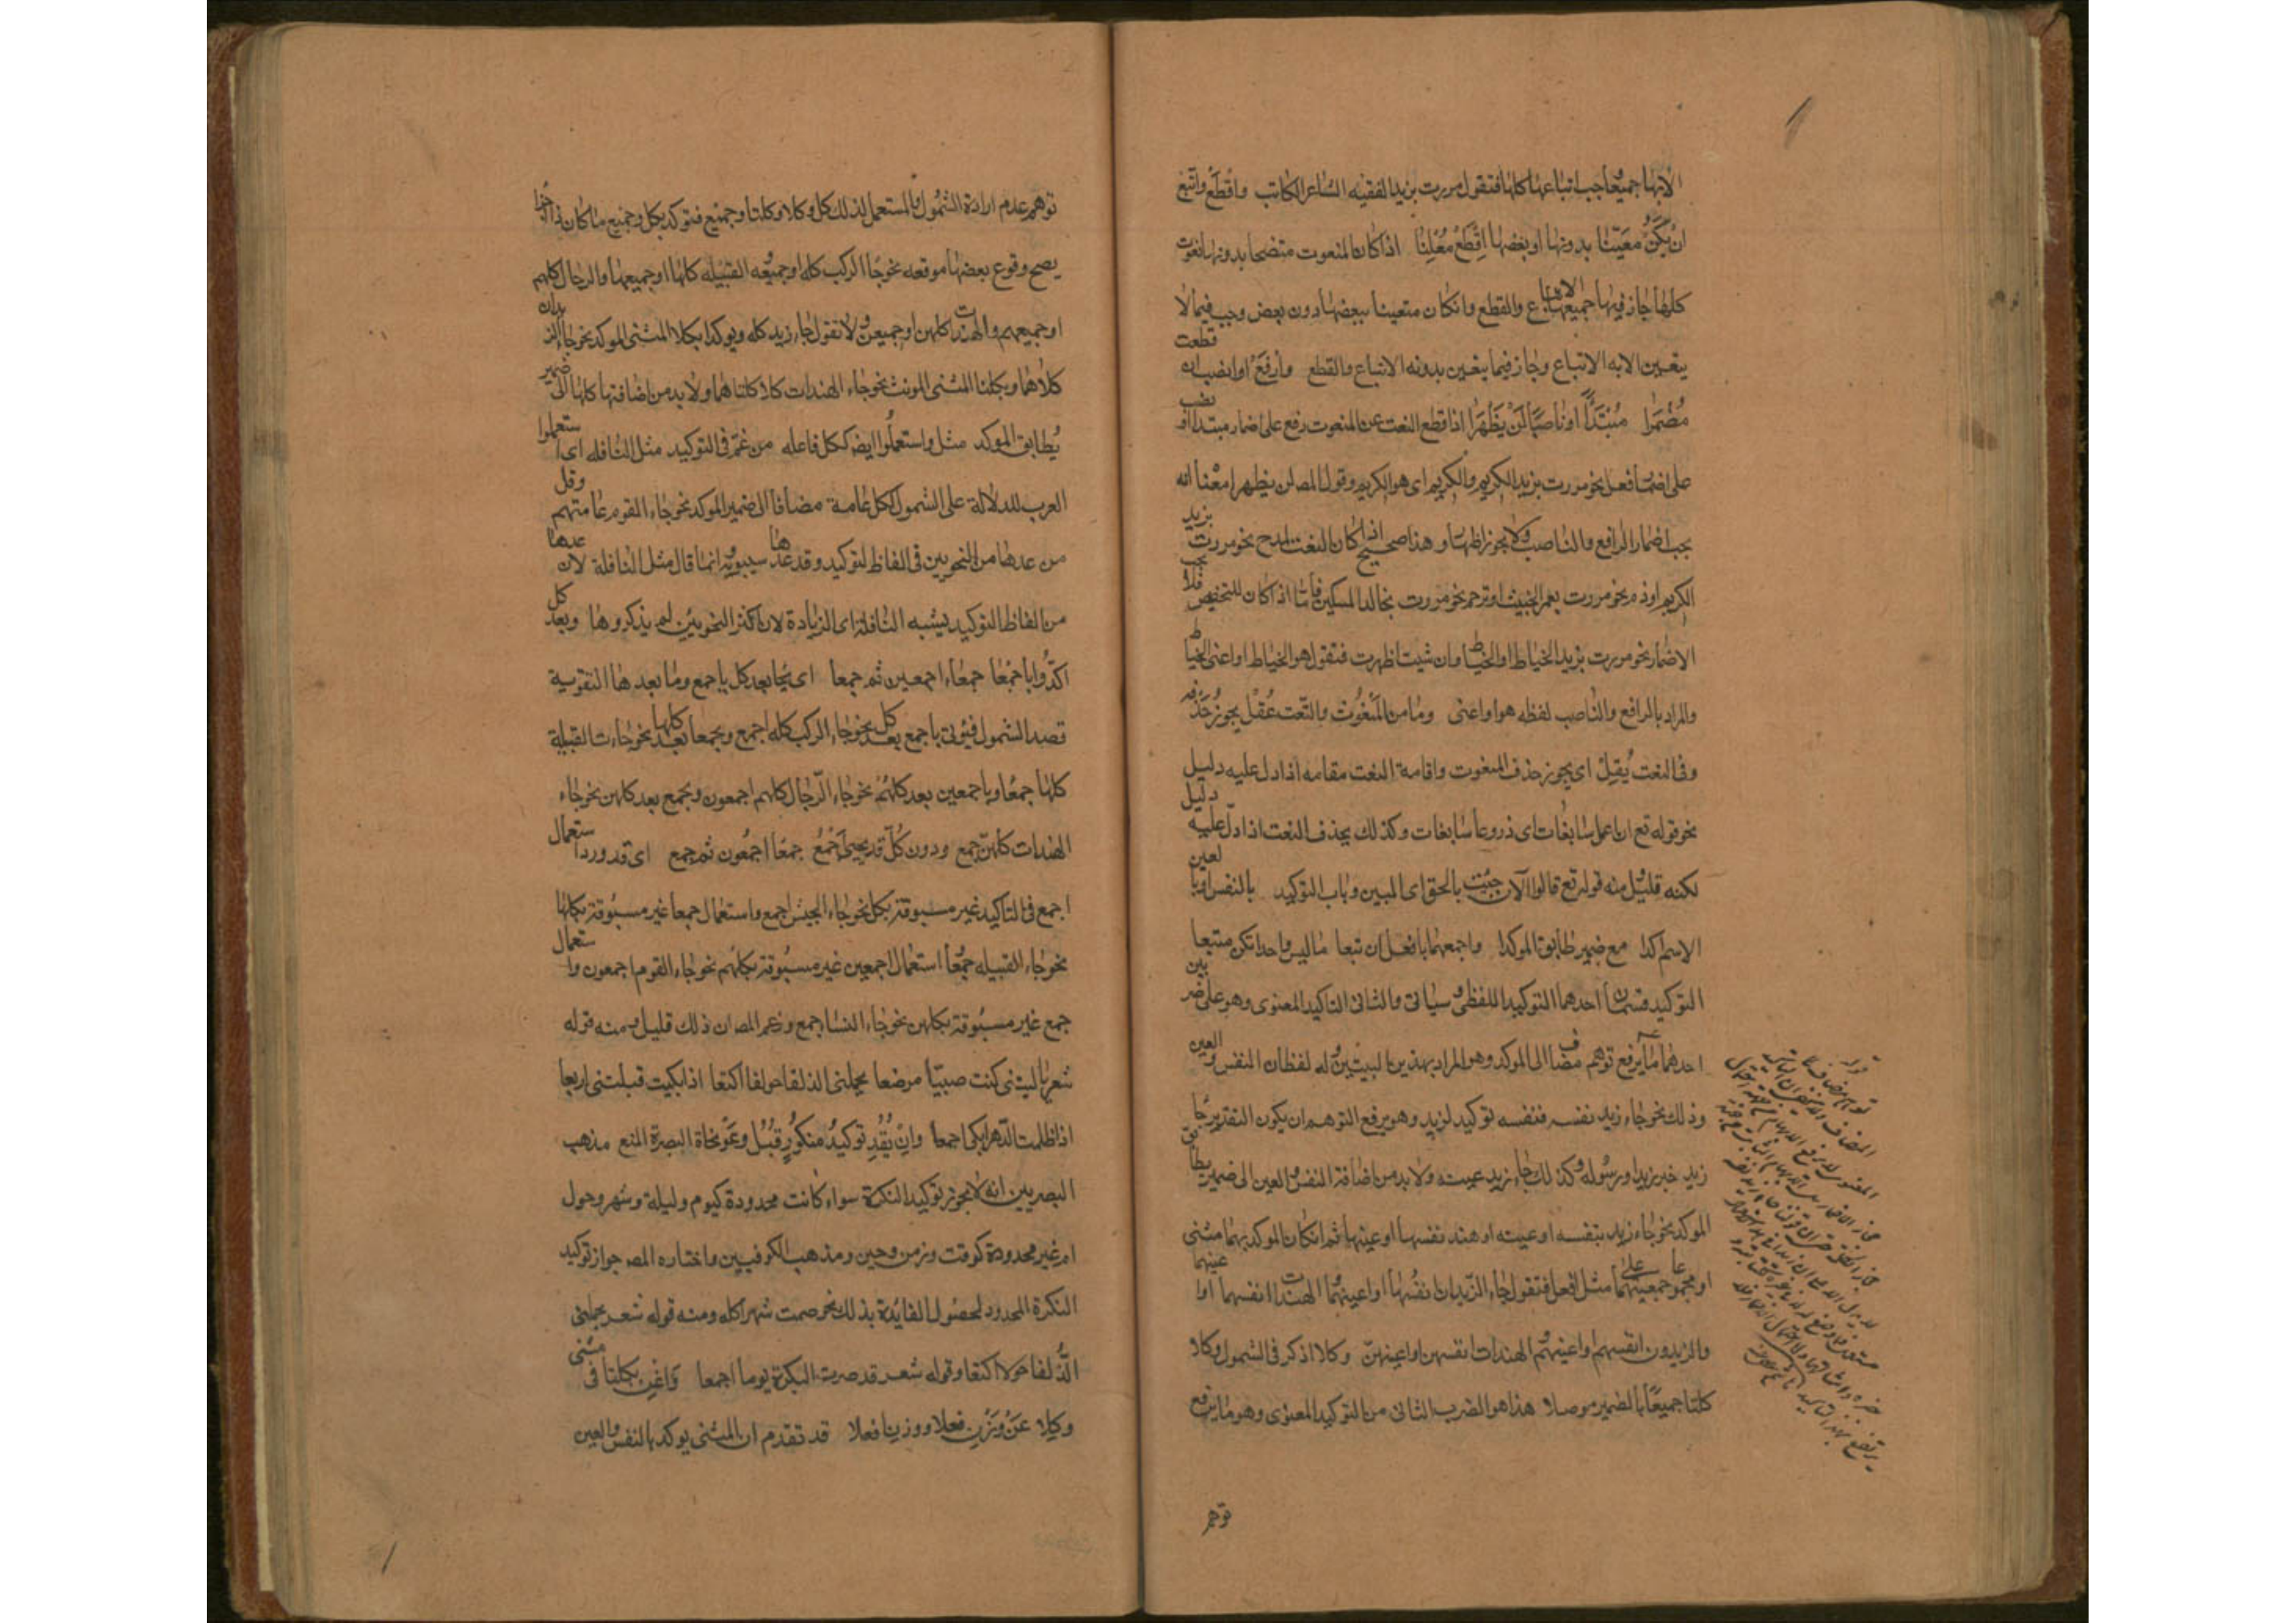 الابها جميعا وجب اتباعها كلها فتقول مررت بزيد الفقيه الشاعر الكاتب واقطع واتبع
ان يكن معينا بدونها او بعضها اقطع معلنا اذا كان المنعوت متضحا بدونها نعوت
كلها جاز فيها جميعها الاتباع والقطع وان كان متعينا ببعضها دون بعض وجب فيما لا
يتعين الا به الاتباع وجاز فيما يتعين بدونه الاتباع والقطع وارفع او انصب ان قطعت
مضمرا مبتدأ او ناصبا لن يظهرا اذا قطع النعت عن المنعوت رفع على اضمار مبتدا او نصب
على اضمار فعل نحو مررت بزيد الكريم والكريم اى هو الكريم وقول المص لن يظهرا معناه انه
يجب اضمار الرافع والناصب ولا يجوز اظهاره وهذا صحيح اذا كان النعت لمدح نحو مررت بزيد
الكريم او ذم نحو مررت بعمرو الخبيث او ترحم نحو مررت بخالد المسكين فاما اذا كان للتخصيص فلا يجب
الاضمار نحو مررت بزيد الخياط او الخياط وان شيت اظهرت فتقول هو الخياط او اعنى الخياط
والمراد بالرافع والناصب لفظه هو او اعنى وما من المنعوت والنعت عقل يجوز حذفه
وفى النعت يقل اى يجوز حذف المنعوت واقامة النعت مقامه اذا دل عليه دليل
نحو قوله تع ان اعمل سابغات اى دروعا سابغات وكذلك يحذف النعت اذا دل عليه دليل
لكنه قليل ومنه قوله تع قالوا الآن جئت بالحق اى المبين وباب التوكيد بالنفس او بالعين
الاسم اكدا مع ضمير طابق الموكدا واجمعهما بافعل ان تبعا ما ليس واحدا تكن متبعا
التوكيد قسمان احدهما التوكيد اللفظى وسياتى والثانى التاكيد المعنوى وهو على ضربين
احدهما ما يرفع توهم مضاف الى الموكد وهو المراد بهذين البيتين وله لفظان النفس والعين
وذلك نحو جاء زيد نفسه فنفسه توكيد لزيد وهو يرفع التوهم ان يكون التقدير جا
زيد خبر زيد او رسوله وكذلك جاء زيد عينه ولا بد من اضافة النفس والعين الى ضمير يطابق
الموكد نحو جاء زيد بنفسه او عينه او هند نفسها او عينها ثم ان كان الموكد بهما مثنى
او مجموعا جمعهما على مثل افعل فتقول جاء الزيدان انفسهما او اعينهما الهندات انفسهما او اعينهما
والزيدون انفسهم واعينهم الهندات انفسهن او اعينهن وكلا اذكر فى الشمول وكلا
كلتا جميعا بالضمير موصلا هذا هو الضرب الثانى من التوكيد المعنوى وهو ما يرفع
توهم
توهم عدم ارادة الشمول والمستعمل لذلك كل وكلا وكلتا وجميع فتوكد بكل وجميع ما كان ذا اجزا
يصح وقوع بعضها موقعه نحو جاء الركب كله او جميعه القبيله كلها او جميعها والرجال كلهم
او جميعهم والهندات كلهن او جميعهن ولا تقول جاء زيد كله ويوكد بكلا المثنى الموكد نحو جاء الزيدان
كلاهما وبكلتا المثنى المونث نحو جاء الهندات كلا كلتاهما ولا بد من اضافتها كلها الى ضمير
يطابق الموكد مثل واستعملوا ايض ككل فاعله من عم فى التوكيد مثل النافله اى استعملوا
العرب للدلالة على الشمول ككل عامة مضافا الى ضمير الموكد نحو جاء القوم عامتهم وقل
من عدها من النحويين فى الفاظ التوكيد وقد عدها سيبويه وانما قال مثل النافلة لان عدها
من الفاظ التوكيد يشبه النافلة اى الزيادة لان اكثر النحويين لم يذكروها وبعد كل
اكدوا باجمعا جمعاء اجمعين ثم جمعا اى يجا بعد كل باجمع وما بعدها لتقوية
قصد الشمول فيؤتى باجمع بعد كل نحو جاء الركب كله اجمع وبجمعا بعد كلها نحو جاءت القبيلة
كلها جمعا وباجمعين بعد كلهم نحو جاء الرجال كلهم اجمعون وبجمع بعد كلهن نحو جاء
الهندات كلهن جمع ودون كل قد يجيئ اجمع جمعا اجمعون ثم جمع اى قد ورد استعمال
اجمع فى التاكيد غير مسبوقة بكل نحو جاء الجيش اجمع واستعمال جمعا غير مسبوقة بكلها
نحو جاء القبيله جمعا استعمال اجمعين غير مسبوقة بكلهم نحو جاء القوم اجمعون واستعمال
جمع غير مسبوقة بكلهن نحو جاء النسا جمع وزعم المص ان ذلك قليل ومنه قوله
شعر يا ليتنى كنت صبيا مرضعا يحملنى الذلفا حولا اكتعا اذا بكيت قبلتنى اربعا
اذا ظللت الدهر ابكى اجمعا وان يفد توكيد منكور قبل وعن نحاة البصرة المنع مذهب
البصريين انه لا يجوز توكيد النكرة سواء كانت محدودة كيوم وليلة وشهر وحول
ام غير محدودة كوقت وزمن وحين ومذهب الكوفيين واختاره المص جواز توكيد
النكرة المحدود لحصول الفايدة بذلك نحو صمت شهرا كله ومنه قوله شعر يحملنى
الذلفا حولا اكتعا وقوله شعر قد صرت البكرة يوما اجمعا واغن بكلتا فى مثنى
وكلا عن وزن فعلا ووزن افعلا قد تقدم ان المثنى يوكد بالنفس والعين